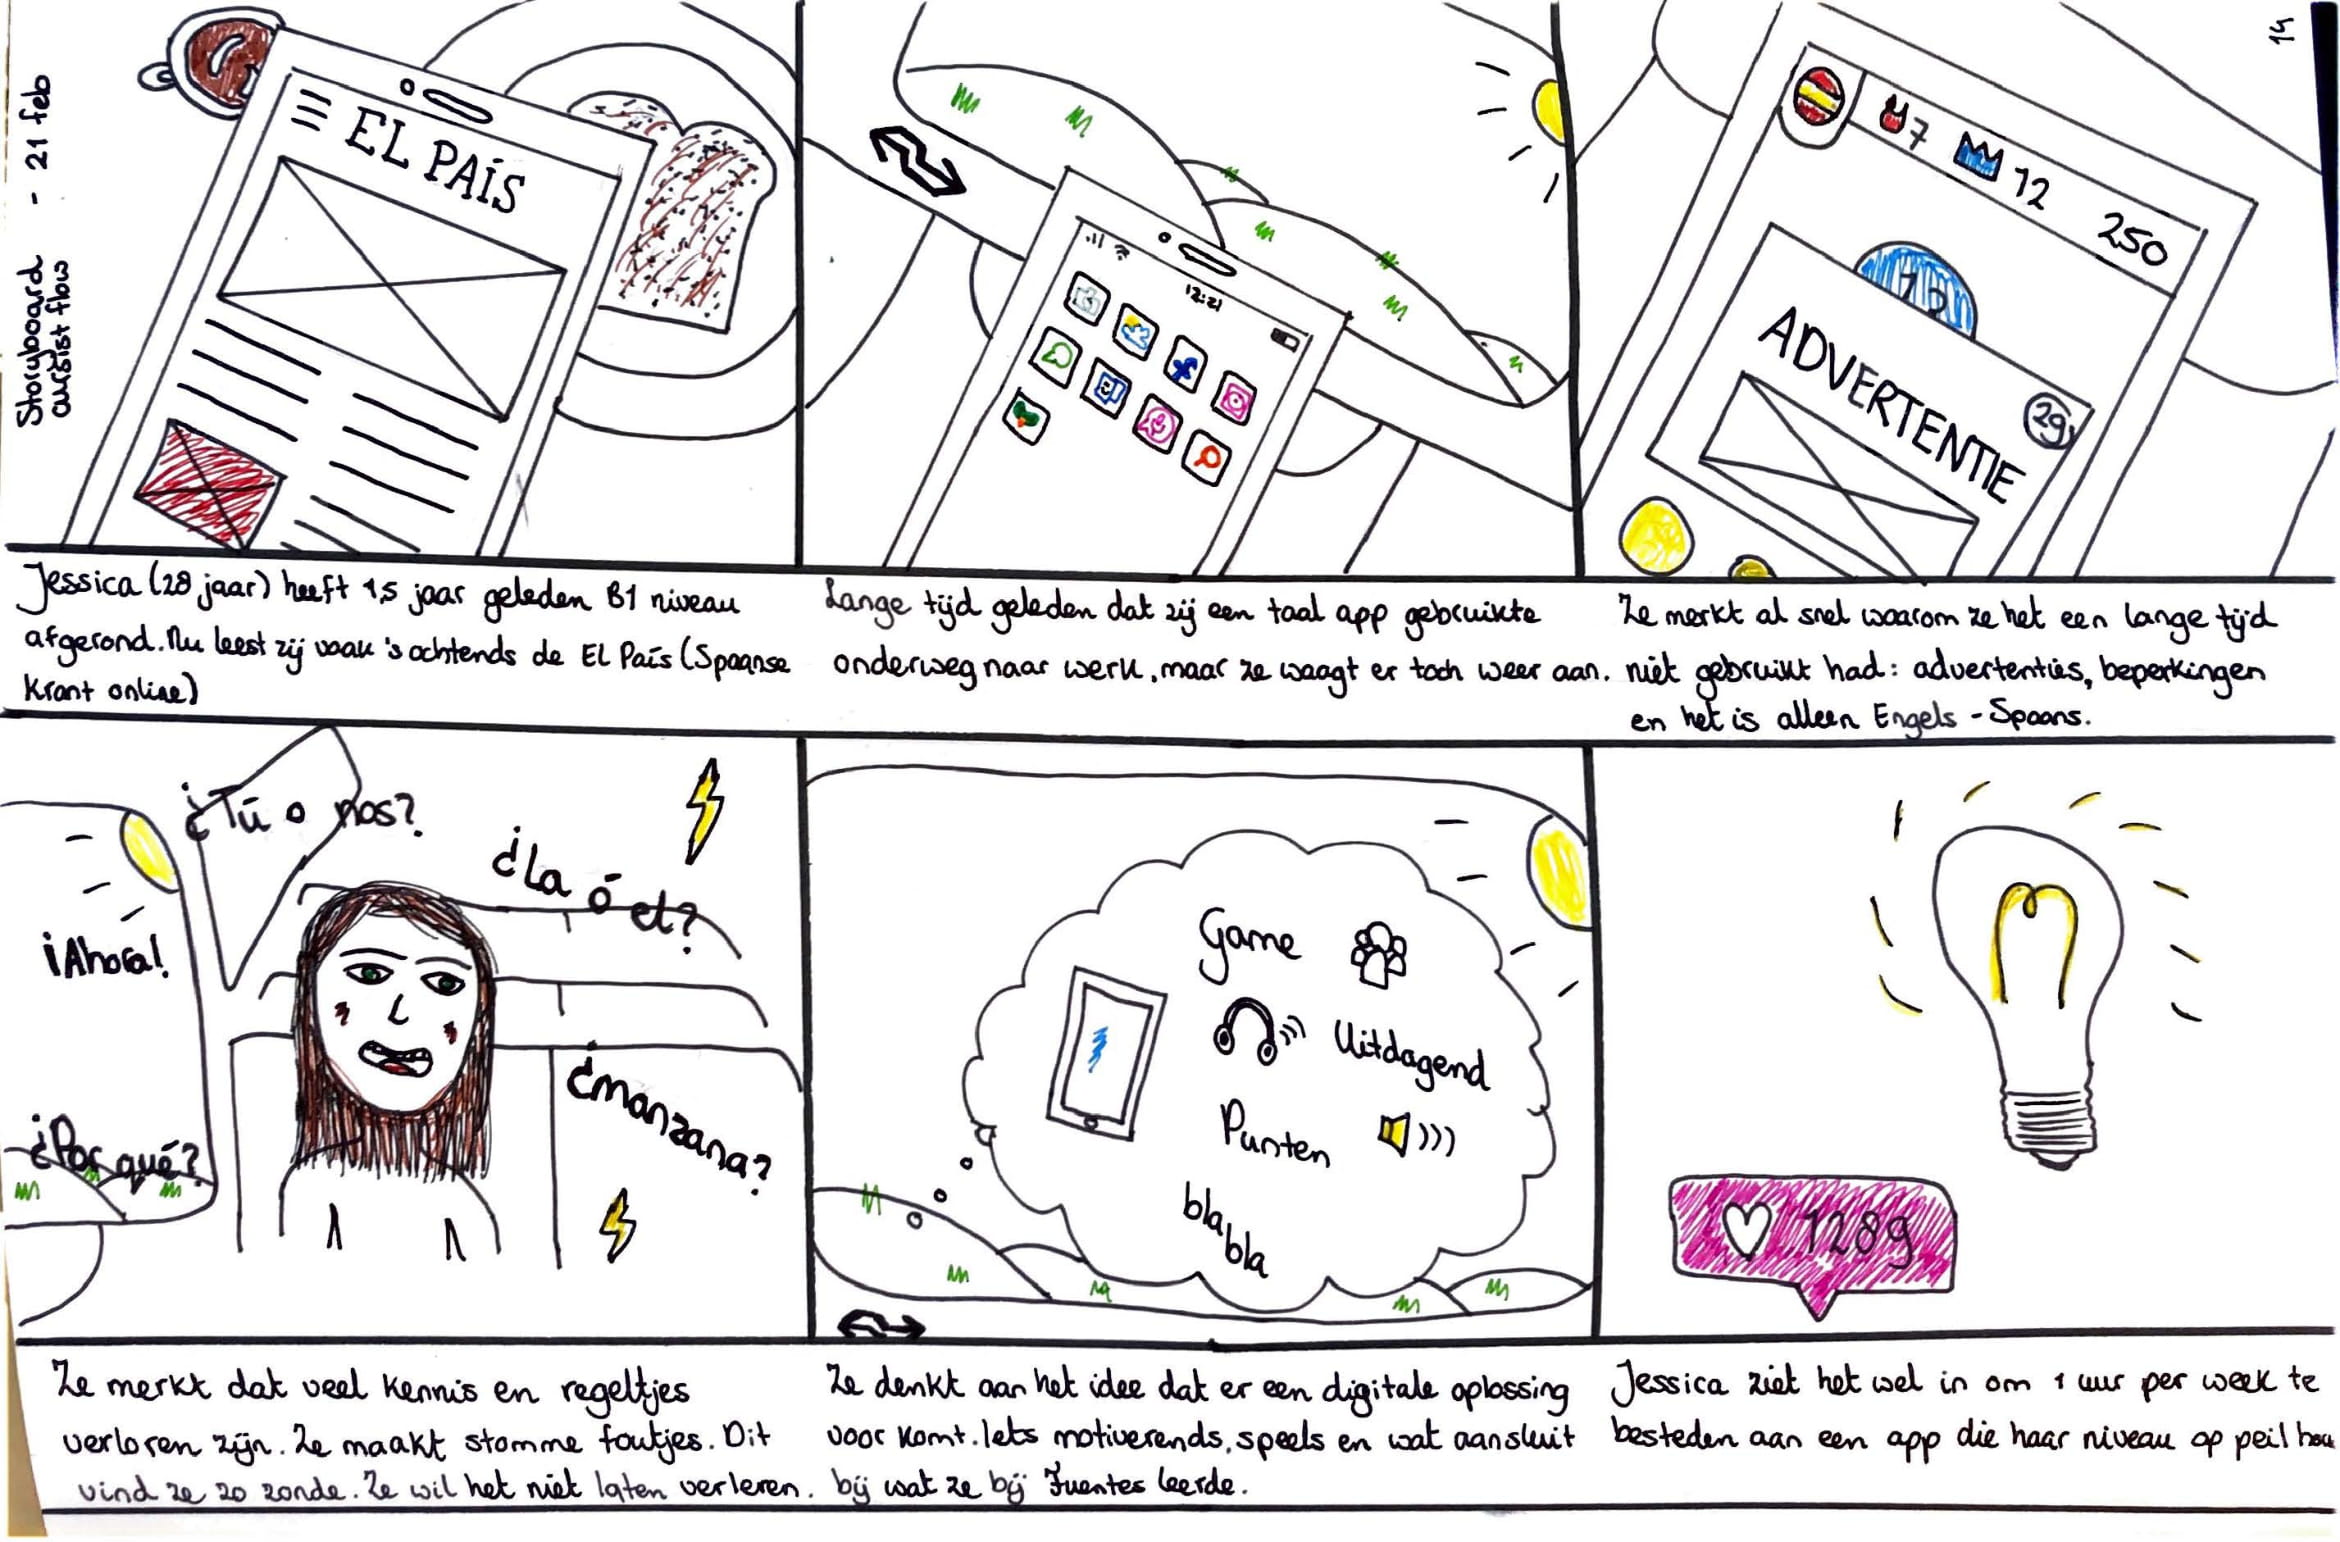 Storyboard - 21 feb
cursist flow
14
EL PAÍS
12:21
7
12
250
15
ADVERTENTIE
29
Jessica (28 jaar) heeft 1,5 jaar geleden B1 niveau
afgerond. Nu leest zij vaak 's ochtends de El País (Spaanse
krant online)
Lange tijd geleden dat zij een taal app gebruikte
onderweg naar werk, maar ze waagt er toch weer aan.
Ze merkt al snel waarom ze het een lange tijd
niet gebruikt had: advertenties, beperkingen
en het is alleen Engels - Spaans.
¿Tú o nos?
¿La ó el?
¡Ahora!
¿manzana?
¿Por qué?
Game
Uitdagend
Punten
bla
bla
1289
Ze merkt dat veel kennis en regeltjes
verloren zijn. Ze maakt stomme foutjes. Dit
vind ze zo zonde. Ze wil het niet laten verleren.
Ze denkt aan het idee dat er een digitale oplossing
voor komt. Iets motiverends, speels en wat aansluit
bij wat ze bij Fuentes leerde.
Jessica ziet het wel in om 1 uur per week te
besteden aan een app die haar niveau op peil hou